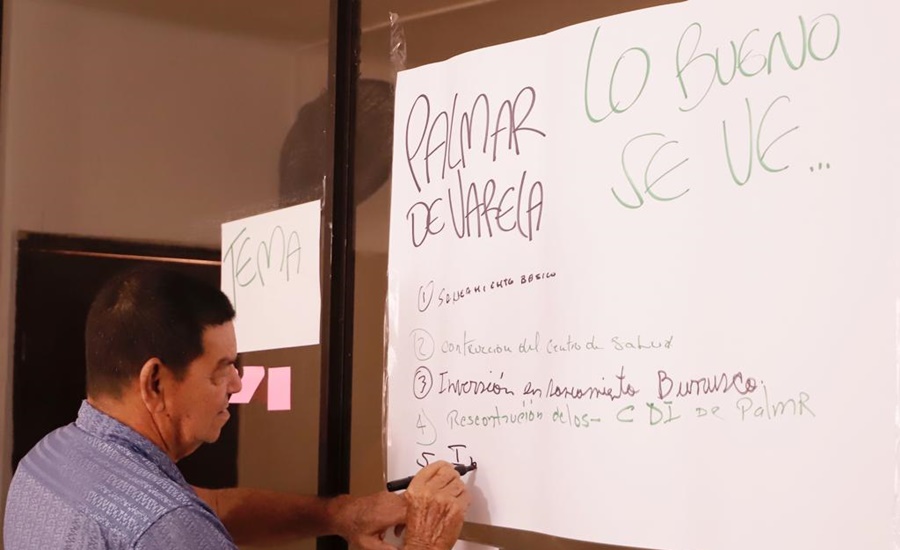 TEMA
PALMAR
DE VARELA
LO BUENO
SE VE...
① SANEAMIENTO BASICO
② Contruccion del Centro de Salud
③ Inversión en saneamiento
④ Rescontrucion de los - CDI De PalmR
5 I